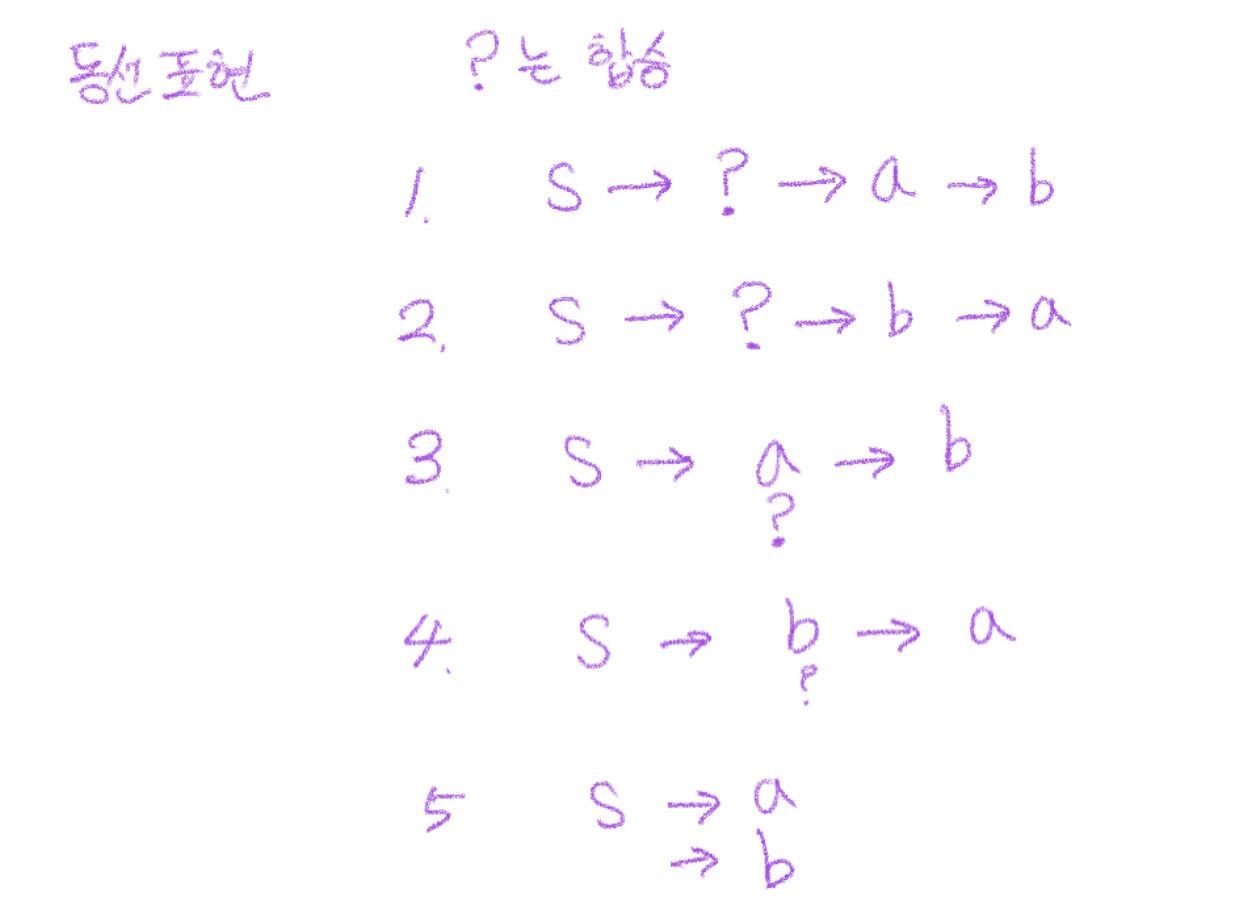 동선 표현 ?는 합승
1. S → ? → a → b
2. S → ? → b → a
3. S → a → b
?
4. S → b → a
?
5 S → a
→ b